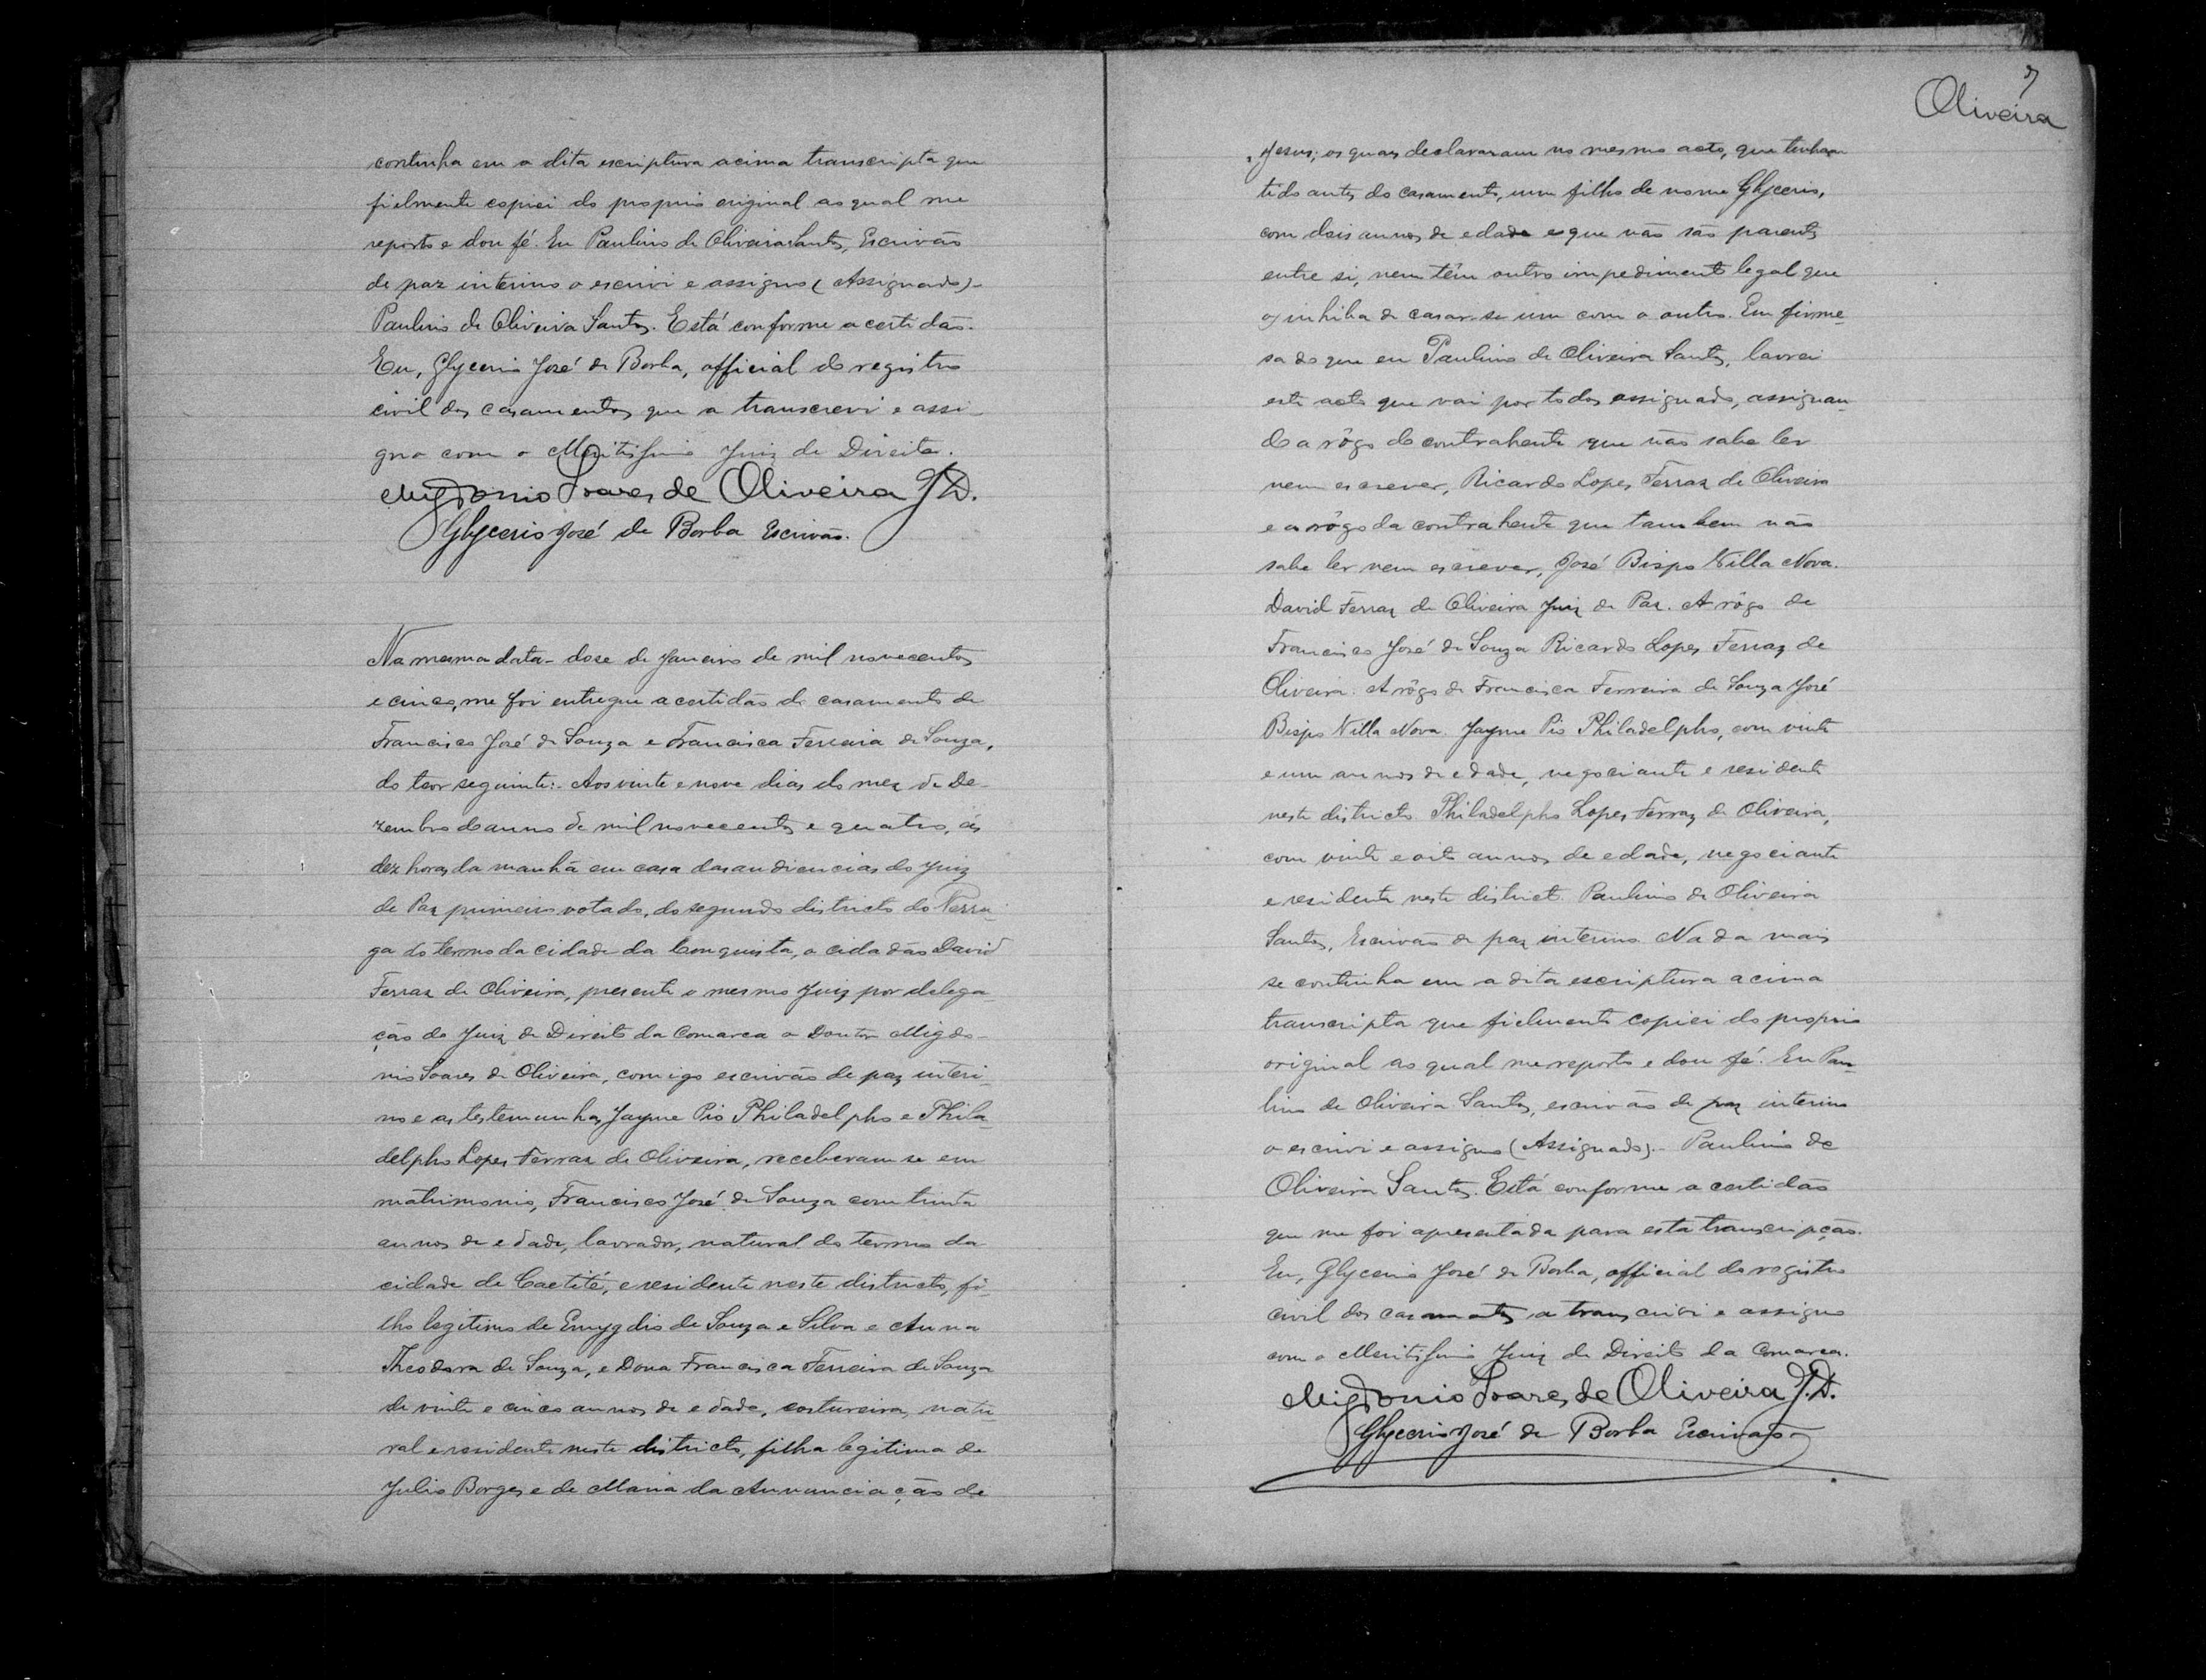 continha em a dita escriptura acima transcripta que
fielmente copiei do proprio original ao qual me
reporto e dou fé. Eu Paulino de Oliveira Santos, Escrivão
de paz interino o escrivi e assigno (Assignado)-
Paulino de Oliveira Santos. Está conforme a certidão.
Eu, Glycerio José de Borba, official do registro
civil dos casamentos que a transcrevi e assi-
gno com o Meritissimo Juiz de Direito.
Migdonio Soares de Oliveira J.D.
Glycerio José de Borba Escrivão.
Na mesma data - dose de Janeiro de mil novecentos
e cinco, me foi entregue a certidão de casamento de
Francisco José de Souza e Francisca Ferreira de Souza,
do teor seguinte:- Aos vinte e nove dias do mez de De-
zembro do anno de mil novecentos e quatro, ás
dez horas da manhã em casa das audiencias do Juiz
de Paz primeiro votado, do segundo districto do Verru-
ga do termo da cidade da Conquista, o cidadão David
Ferraz de Oliveira, presente o mesmo Juiz por delega-
ção do Juiz de Direito da Comarca o Doutor Migdo-
nio Soares de Oliveira, comigo escrivão de paz interi-
no e as testemunhas Jayme Pio Philadelpho e Phila-
delpho Lopes Ferraz de Oliveira, receberam-se em
matrimonio, Francisco José de Souza com trinta
annos de edade, lavrador, natural do termo da
cidade de Caetité, e residente neste districto, fi-
lho legitimo de Emygdio de Souza e Silva e Anna
Theodora de Souza, e Dona Francisca Ferreira de Souza
de vinte e cinco annos de edade, costureira, natu-
ral e residente neste districto, filha legitima de
Julio Borges e de Maria da Annunciação de
7
Oliveira
Jesus; os quaes declararam no mesmo acto, que tinham
tido antes do casamento, um filho de nome Glycerio,
com dois annos de edade e que não são parentes
entre si, nem têm outro impedimento legal que
os inhiba de casar-se um com o outro. Em firme-
sa do que eu Paulino de Oliveira Santos, lavrei
este acto que vai por todos assignado, assignan-
do a rôgo do contrahente que não sabe ler
nem escrever, Ricardo Lopes Ferraz de Oliveira
e a rôgo da contrahente que tambem não
sabe ler nem escrever, José Bispo Villa Nova.
David Ferraz de Oliveira Juiz de Paz. A rôgo de
Francisco José de Souza Ricardo Lopes Ferraz de
Oliveira. A rôgo de Francisca Ferreira de Souza José
Bispo Villa Nova. Jayme Pio Philadelpho, com vinte
e um annos de edade, negociante e residente
neste districto. Philadelpho Lopes Ferraz de Oliveira,
com vinte e oito annos de edade, negociante
e residente neste district. Paulino de Oliveira
Santos, Escrivão de paz interino. Nada mais
se continha em a dita escriptura acima
transcripta que fielmente copiei do proprio
original ao qual me reporto e dou fé. Eu Pau-
lino de Oliveira Santos, escrivão de paz interino
o escrivi e assigno (Assignado).- Paulino de
Oliveira Santos. Está conforme a certidão
que me foi apresentada para esta transcripção.
Eu, Glycerio José de Borba, official do registro
civil dos casamentos a transcrivi e assigno
com o Meritissimo Juiz de Direito da Comarca.
Migdonio Soares de Oliveira J.D.
Glycerio José de Borba Escrivão